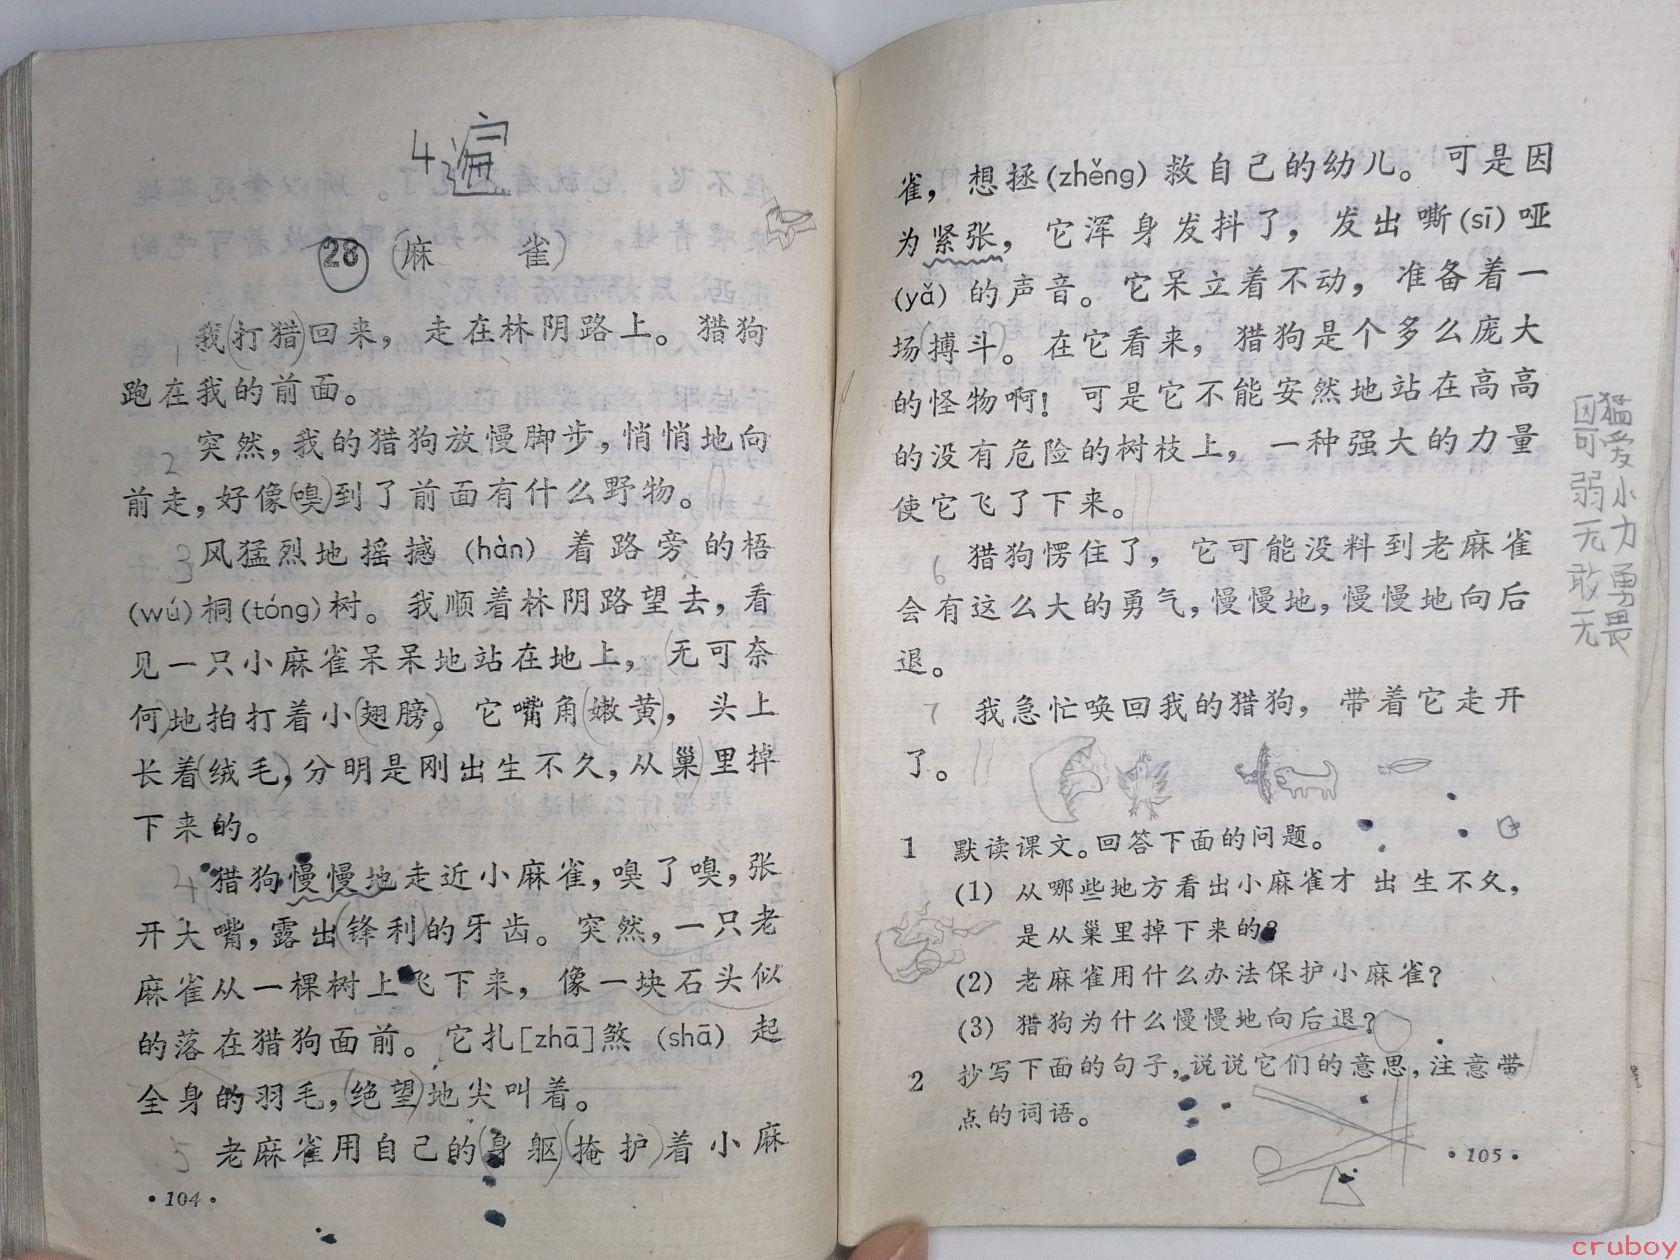 4遍
28 麻 雀
1 我打猎回来，走在林阴路上。猎狗
跑在我的前面。
2 突然，我的猎狗放慢脚步，悄悄地向
前走，好像嗅到了前面有什么野物。
3 风猛烈地摇撼 (hàn) 着路旁的梧
(wú) 桐 (tóng) 树。我顺着林阴路望去，看
见一只小麻雀呆呆地站在地上，无可奈
何地拍打着小翅膀。它嘴角嫩黄，头上
长着绒毛，分明是刚出生不久，从巢里掉
下来的。
4 猎狗慢慢地走近小麻雀，嗅了嗅，张
开大嘴，露出锋利的牙齿。突然，一只老
麻雀从一棵树上飞下来，像一块石头似
的落在猎狗面前。它扎[zhā]煞 (shā) 起
全身的羽毛，绝望地尖叫着。
5 老麻雀用自己的身躯掩护着小麻
·104·
雀，想拯 (zhěng) 救自己的幼儿。可是因
为紧张，它浑身发抖了，发出嘶 (sī) 哑
(yǎ) 的声音。它呆立着不动，准备着一
场搏斗。在它看来，猎狗是个多么庞大
的怪物啊！可是它不能安然地站在高高
的没有危险的树枝上，一种强大的力量
使它飞了下来。
6 猎狗愣住了，它可能没料到老麻雀
会有这么大的勇气，慢慢地，慢慢地向后
退。
7 我急忙唤回我的猎狗，带着它走开
了。
凶猛
可爱
弱小
无力
敢勇
无畏
1 默读课文。回答下面的问题。
(1) 从哪些地方看出小麻雀才出生不久，
是从巢里掉下来的？
(2) 老麻雀用什么办法保护小麻雀？
(3) 猎狗为什么慢慢地向后退？
2 抄写下面的句子，说说它们的意思，注意带
点的词语。
·105·
cruboy